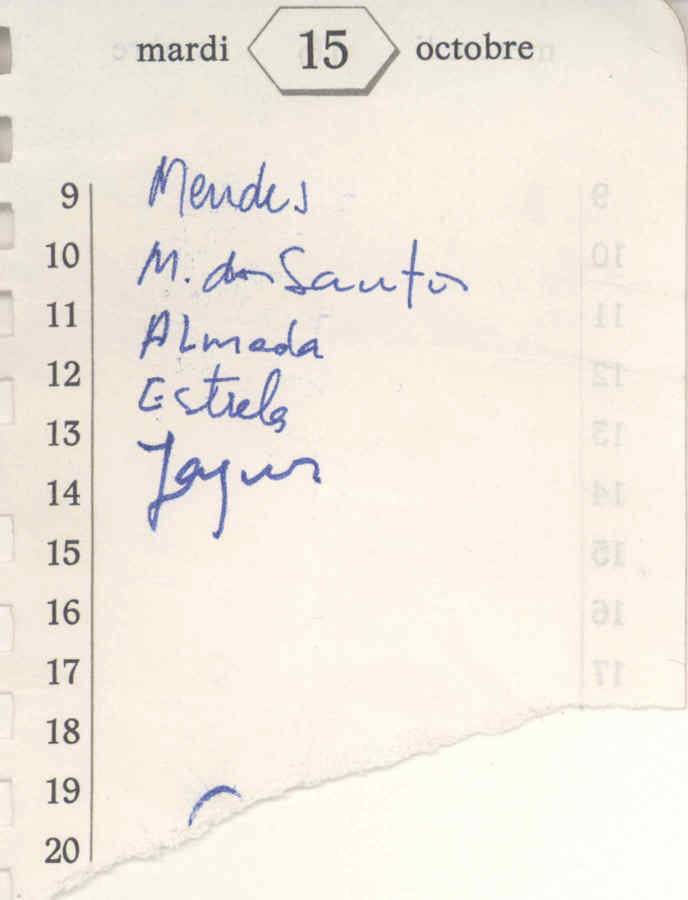 mardi 15 octobre
9 Mendes
10 M. dos Santos
11 Almada
12 Estrela
13
14 Jaques
15
16
17
18
19
20